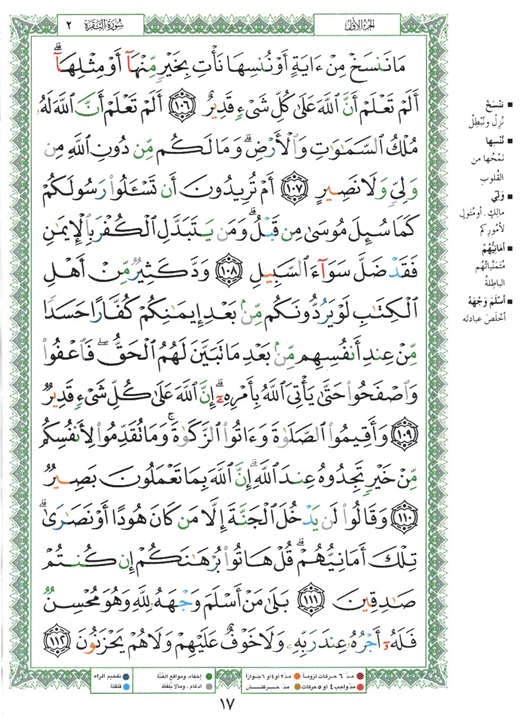 الجزء الأول
سُورَةُ البَقَرَة ٢
مَا نَنسَخْ مِنْ ءَايَةٍ أَوْ نُنسِهَا نَأْتِ بِخَيْرٍ مِّنْهَآ أَوْ مِثْلِهَآ ۗ
أَلَمْ تَعْلَمْ أَنَّ ٱللَّهَ عَلَىٰ كُلِّ شَىْءٍ قَدِيرٌ ١٠٦ أَلَمْ تَعْلَمْ أَنَّ ٱللَّهَ لَهُۥ
مُلْكُ ٱلسَّمَٰوَٰتِ وَٱلْأَرْضِ ۗ وَمَا لَكُم مِّن دُونِ ٱللَّهِ مِن
وَلِىٍّ وَلَا نَصِيرٍ ١٠٧ أَمْ تُرِيدُونَ أَن تَسْـَٔلُوا۟ رَسُولَكُمْ
كَمَا سُئِلَ مُوسَىٰ مِن قَبْلُ ۗ وَمَن يَتَبَدَّلِ ٱلْكُفْرَ بِٱلْإِيمَٰنِ
فَقَدْ ضَلَّ سَوَآءَ ٱلسَّبِيلِ ١٠٨ وَدَّ كَثِيرٌ مِّنْ أَهْلِ
ٱلْكِتَٰبِ لَوْ يَرُدُّونَكُم مِّنۢ بَعْدِ إِيمَٰنِكُمْ كُفَّارًا حَسَدًا
مِّنْ عِندِ أَنفُسِهِم مِّنۢ بَعْدِ مَا تَبَيَّنَ لَهُمُ ٱلْحَقُّ ۖ فَٱعْفُوا۟
وَٱصْفَحُوا۟ حَتَّىٰ يَأْتِىَ ٱللَّهُ بِأَمْرِهِۦٓ ۗ إِنَّ ٱللَّهَ عَلَىٰ كُلِّ شَىْءٍ قَدِيرٌ
١٠٩ وَأَقِيمُوا۟ ٱلصَّلَوٰةَ وَءَاتُوا۟ ٱلزَّكَوٰةَ ۚ وَمَا تُقَدِّمُوا۟ لِأَنفُسِكُم
مِّنْ خَيْرٍ تَجِدُوهُ عِندَ ٱللَّهِ ۗ إِنَّ ٱللَّهَ بِمَا تَعْمَلُونَ بَصِيرٌ
١١٠ وَقَالُوا۟ لَن يَدْخُلَ ٱلْجَنَّةَ إِلَّا مَن كَانَ هُودًا أَوْ نَصَٰرَىٰ ۗ
تِلْكَ أَمَانِيُّهُمْ ۗ قُلْ هَاتُوا۟ بُرْهَٰنَكُمْ إِن كُنتُمْ
صَٰدِقِينَ ١١١ بَلَىٰ مَنْ أَسْلَمَ وَجْهَهُۥ لِلَّهِ وَهُوَ مُحْسِنٌ
فَلَهُۥٓ أَجْرُهُۥ عِندَ رَبِّهِۦ وَلَا خَوْفٌ عَلَيْهِمْ وَلَا هُمْ يَحْزَنُونَ ١١٢
■ نَنْسَخْ
نُزِلْ ونُبْطِلْ
■ نُنْسِها
نَمْحُها من
القُلوبِ
■ وَلِيّ
مالِكٍ. أو مُتَولٍّ
لأُمُورِكم
■ أمَانِيُّهُمْ
مُتَمَنَّياتُهُم
الباطِلةُ
■ أسْلَمَ وَجْهَهُ
أخْلَصَ عِبادته
مدّ ٦ حركات لزوماً مدّ ٢ أو ٤ أو ٦ جوازاً إخفاء، ومواقع الغنّة تفخيم الراء
مدّ واجب ٤ أو ٥ حركات مدّ حركتان إدغام، وما لا يلفظ قلقلة
١٧